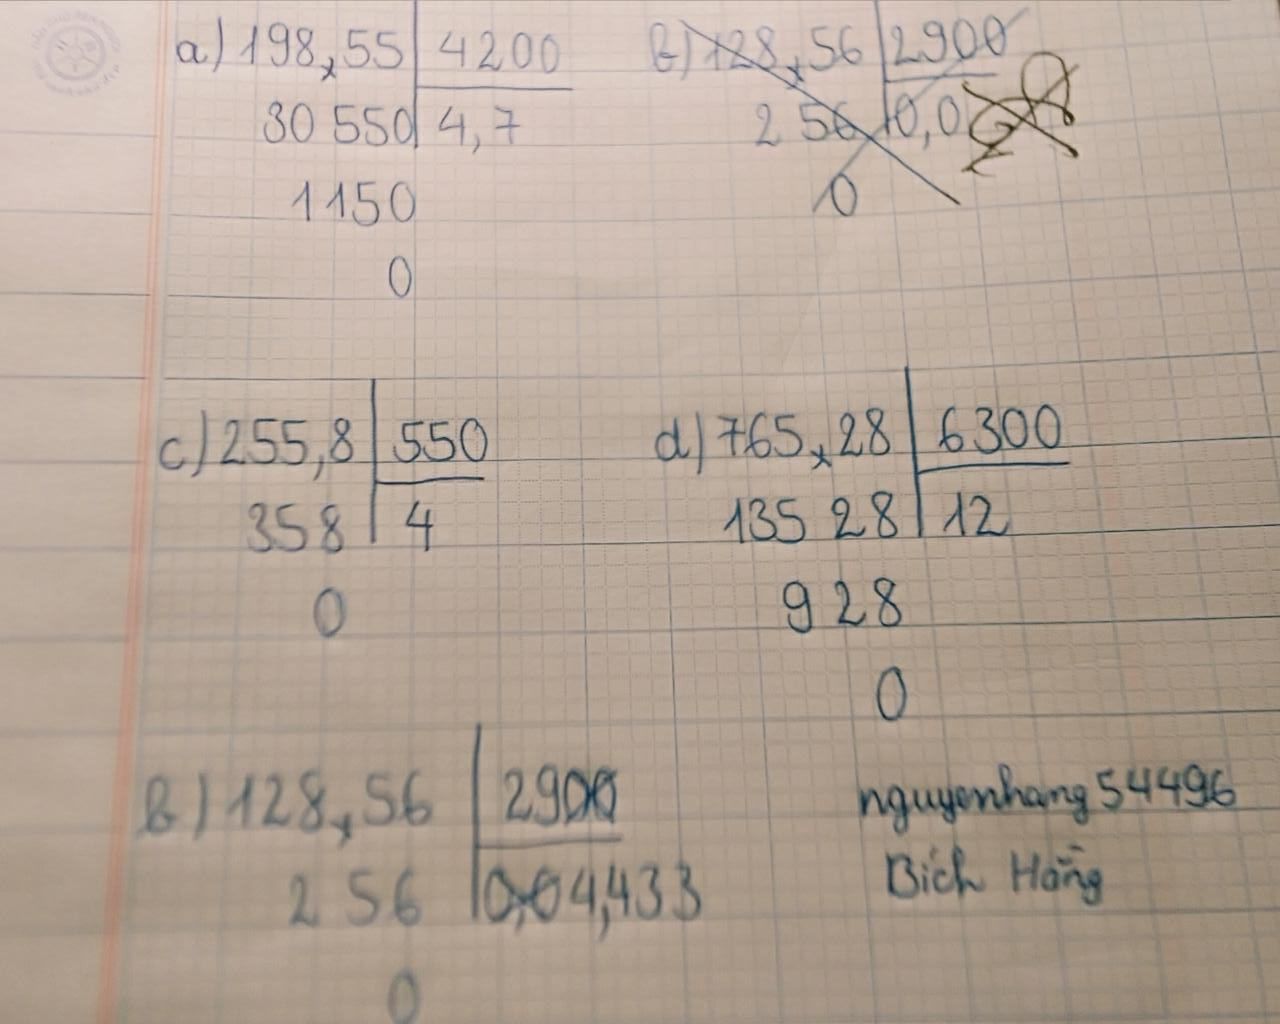 a) 198,55 4200
30 550 4,7
1150
0
b) 128,56 2900
2 56 0,0
0
c) 255,8 550
358 4
0
d) 765,28 6300
135 28 12
9 28
0
b) 128,56 2900
2 56 0,04,433
0
nguyenhang54496
Bích Hằng